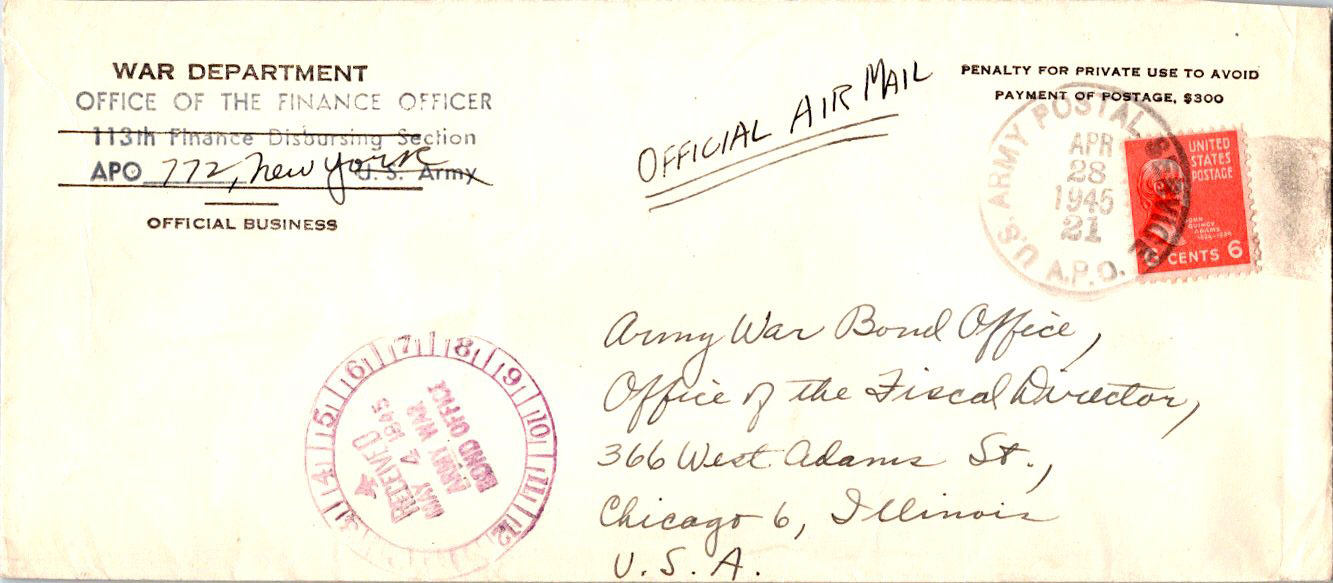 WAR DEPARTMENT
OFFICE OF THE FINANCE OFFICER
113th Finance Disbursing Section
APO 772, New York U.S. Army
OFFICIAL BUSINESS
OFFICIAL AIR MAIL
PENALTY FOR PRIVATE USE TO AVOID
PAYMENT OF POSTAGE, $300
U.S. ARMY POSTAL SERVICE
APR
28
1945
21
A.P.O.
UNITED
STATES
POSTAGE
JOHN
QUINCY
ADAMS
CENTS 6
Army War Bond Office,
Office of the Fiscal Director,
366 West Adams St.,
Chicago 6, Illinois
U.S.A.
3 4 5 6 7 8 9 10 11 12
RECEIVED
MAY 4 1945
ARMY WAR
BOND OFFICE